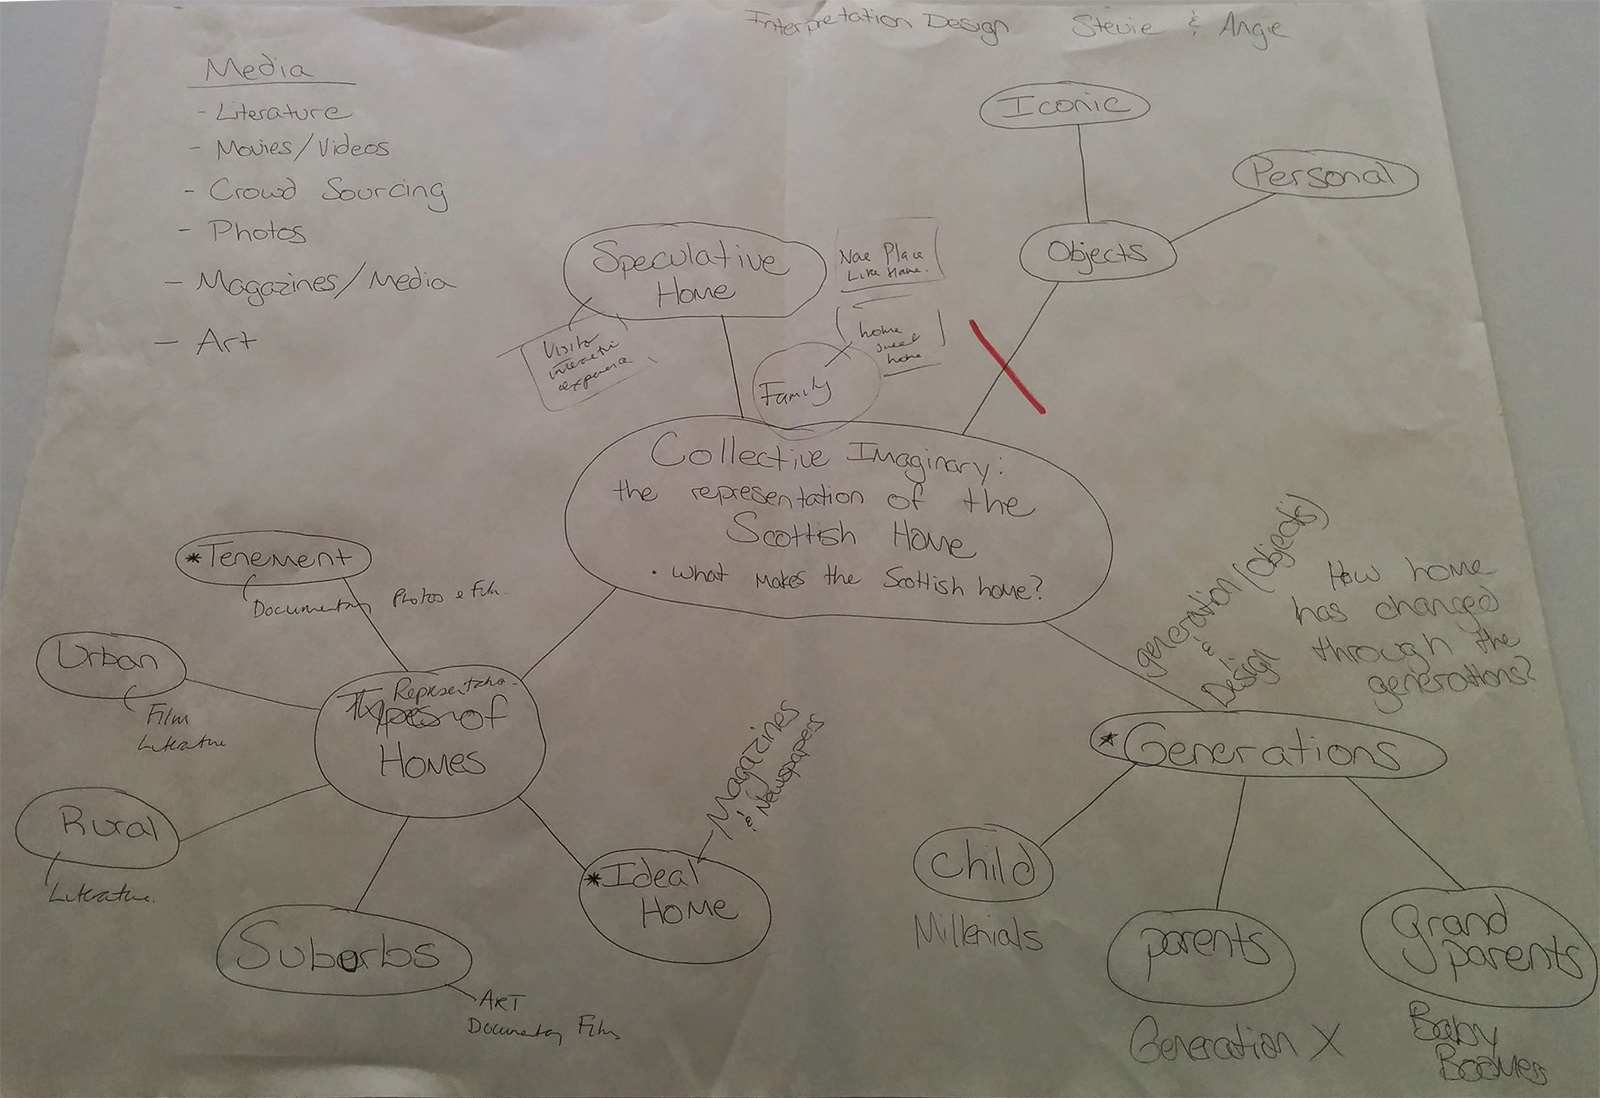 Interpretation Design Stevie & Angie
Media
- Literature
- Movies/Videos
- Crowd Sourcing
- Photos
- Magazines/Media
- Art
Iconic
Personal
Objects
Speculative
Home
Nae Place
Like Hame.
home
sweet
home
Family
Collective Imaginary:
the representation of the
Scottish Home
· what makes the Scottish home?
*Tenement
Documentary Photos & Film
Urban
Film
Literature
Types of
Homes
Rural
Literature.
Suburbs
ART
Documentary Film
*Ideal
Home
Magazines
& Newspapers
generation (objects)
&
Design
How home
has changed
through the
generations?
*Generations
Child
Millenials
parents
Generation X
grand
parents
Baby
Boomers